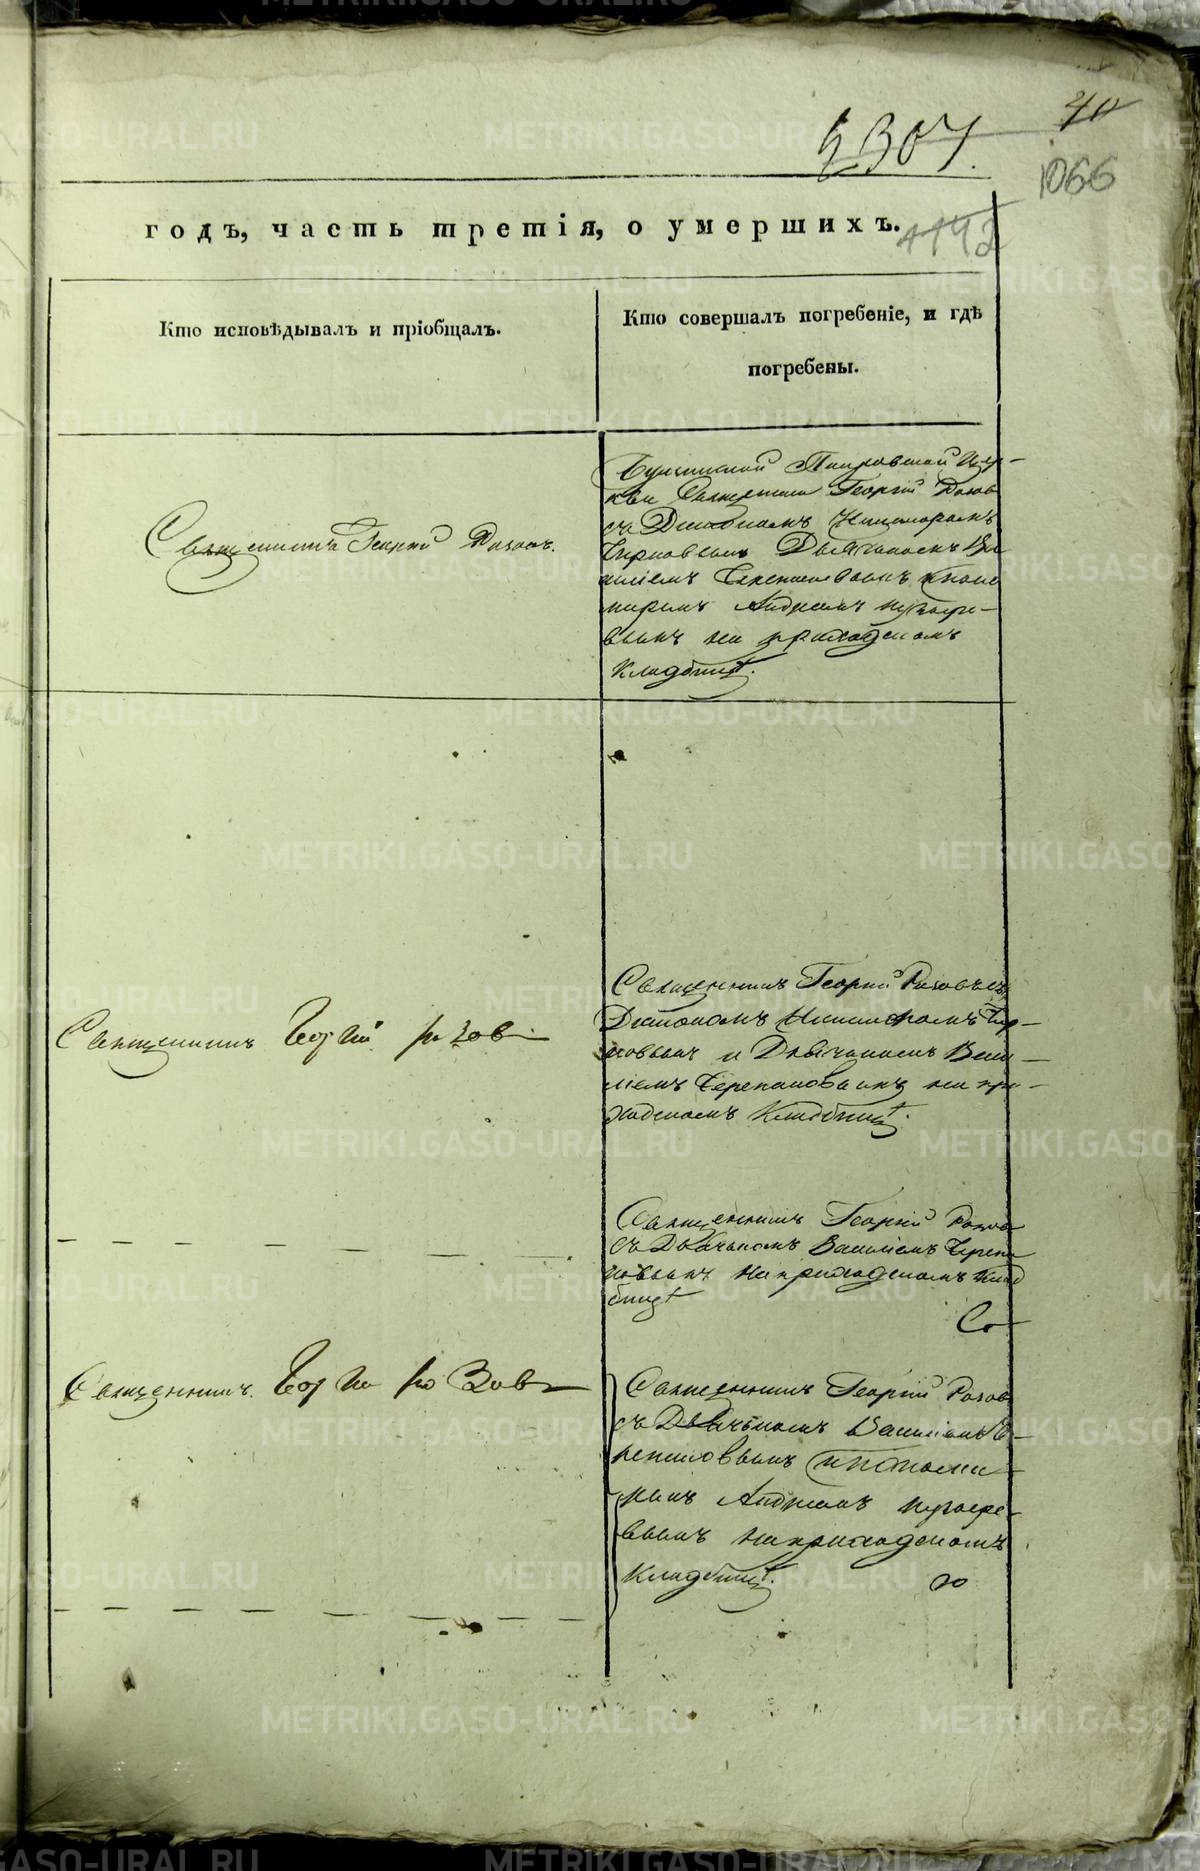 40
2307.
1066
годъ, часть третія, о умершихъ.
1142
Кто исповѣдывалъ и пріобщалъ.
Кто совершалъ погребеніе, и гдѣ
погребены.
Священникъ Георгій Розовъ.
Покровской Цер-
кви Священникъ Георгій Розов
съ Діакономъ Никаноромъ
Дьячкомъ Ва
силіемъ Черепановымъ и поно
маремъ Андреемъ
вымъ на приходскомъ
Кладбищѣ.
Священникъ Георгій Розовъ
Священникъ Георгій Розовъ съ
Діакономъ Никаноромъ Чир-
ковымъ и Дьячкомъ Васи-
ліемъ Черепановымъ на при-
ходскомъ Кладбищѣ.
Священникъ Георгій Розов
съ Дьячкомъ Василіемъ Черепа
новымъ на приходскомъ Клад
бищѣ
Со
Священникъ Георгій Розовъ
Священникъ Георгій Розов
съ Дьячкомъ Василіемъ Че-
репановымъ и Понома-
ремъ Андреемъ
вымъ на приходскомъ
Кладбищѣ.
METRIKI.GASO-URAL.RU